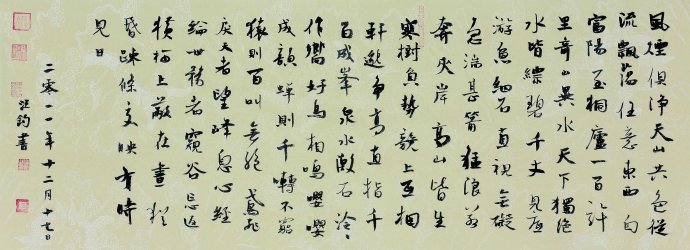 風煙俱淨天山共色從
流飄蕩任意東西自
富陽至桐廬一百許
里奇山異水天下獨絕
水皆縹碧千丈見底
游魚細石直視無礙
急湍甚箭猛浪若
奔夾岸高山皆生
寒樹負勢競上互相
軒邈爭高直指千
百成峯泉水激石泠泠
作響好鳥相鳴嚶嚶
成韻蟬則千囀不窮
猿則百叫無絕鳶飛
戾天者望峰息心經
綸世務者窺谷忘返
橫柯上蔽在晝猶
昏疎條交映有時
見日
二零一一年十二月十七日
鈞書